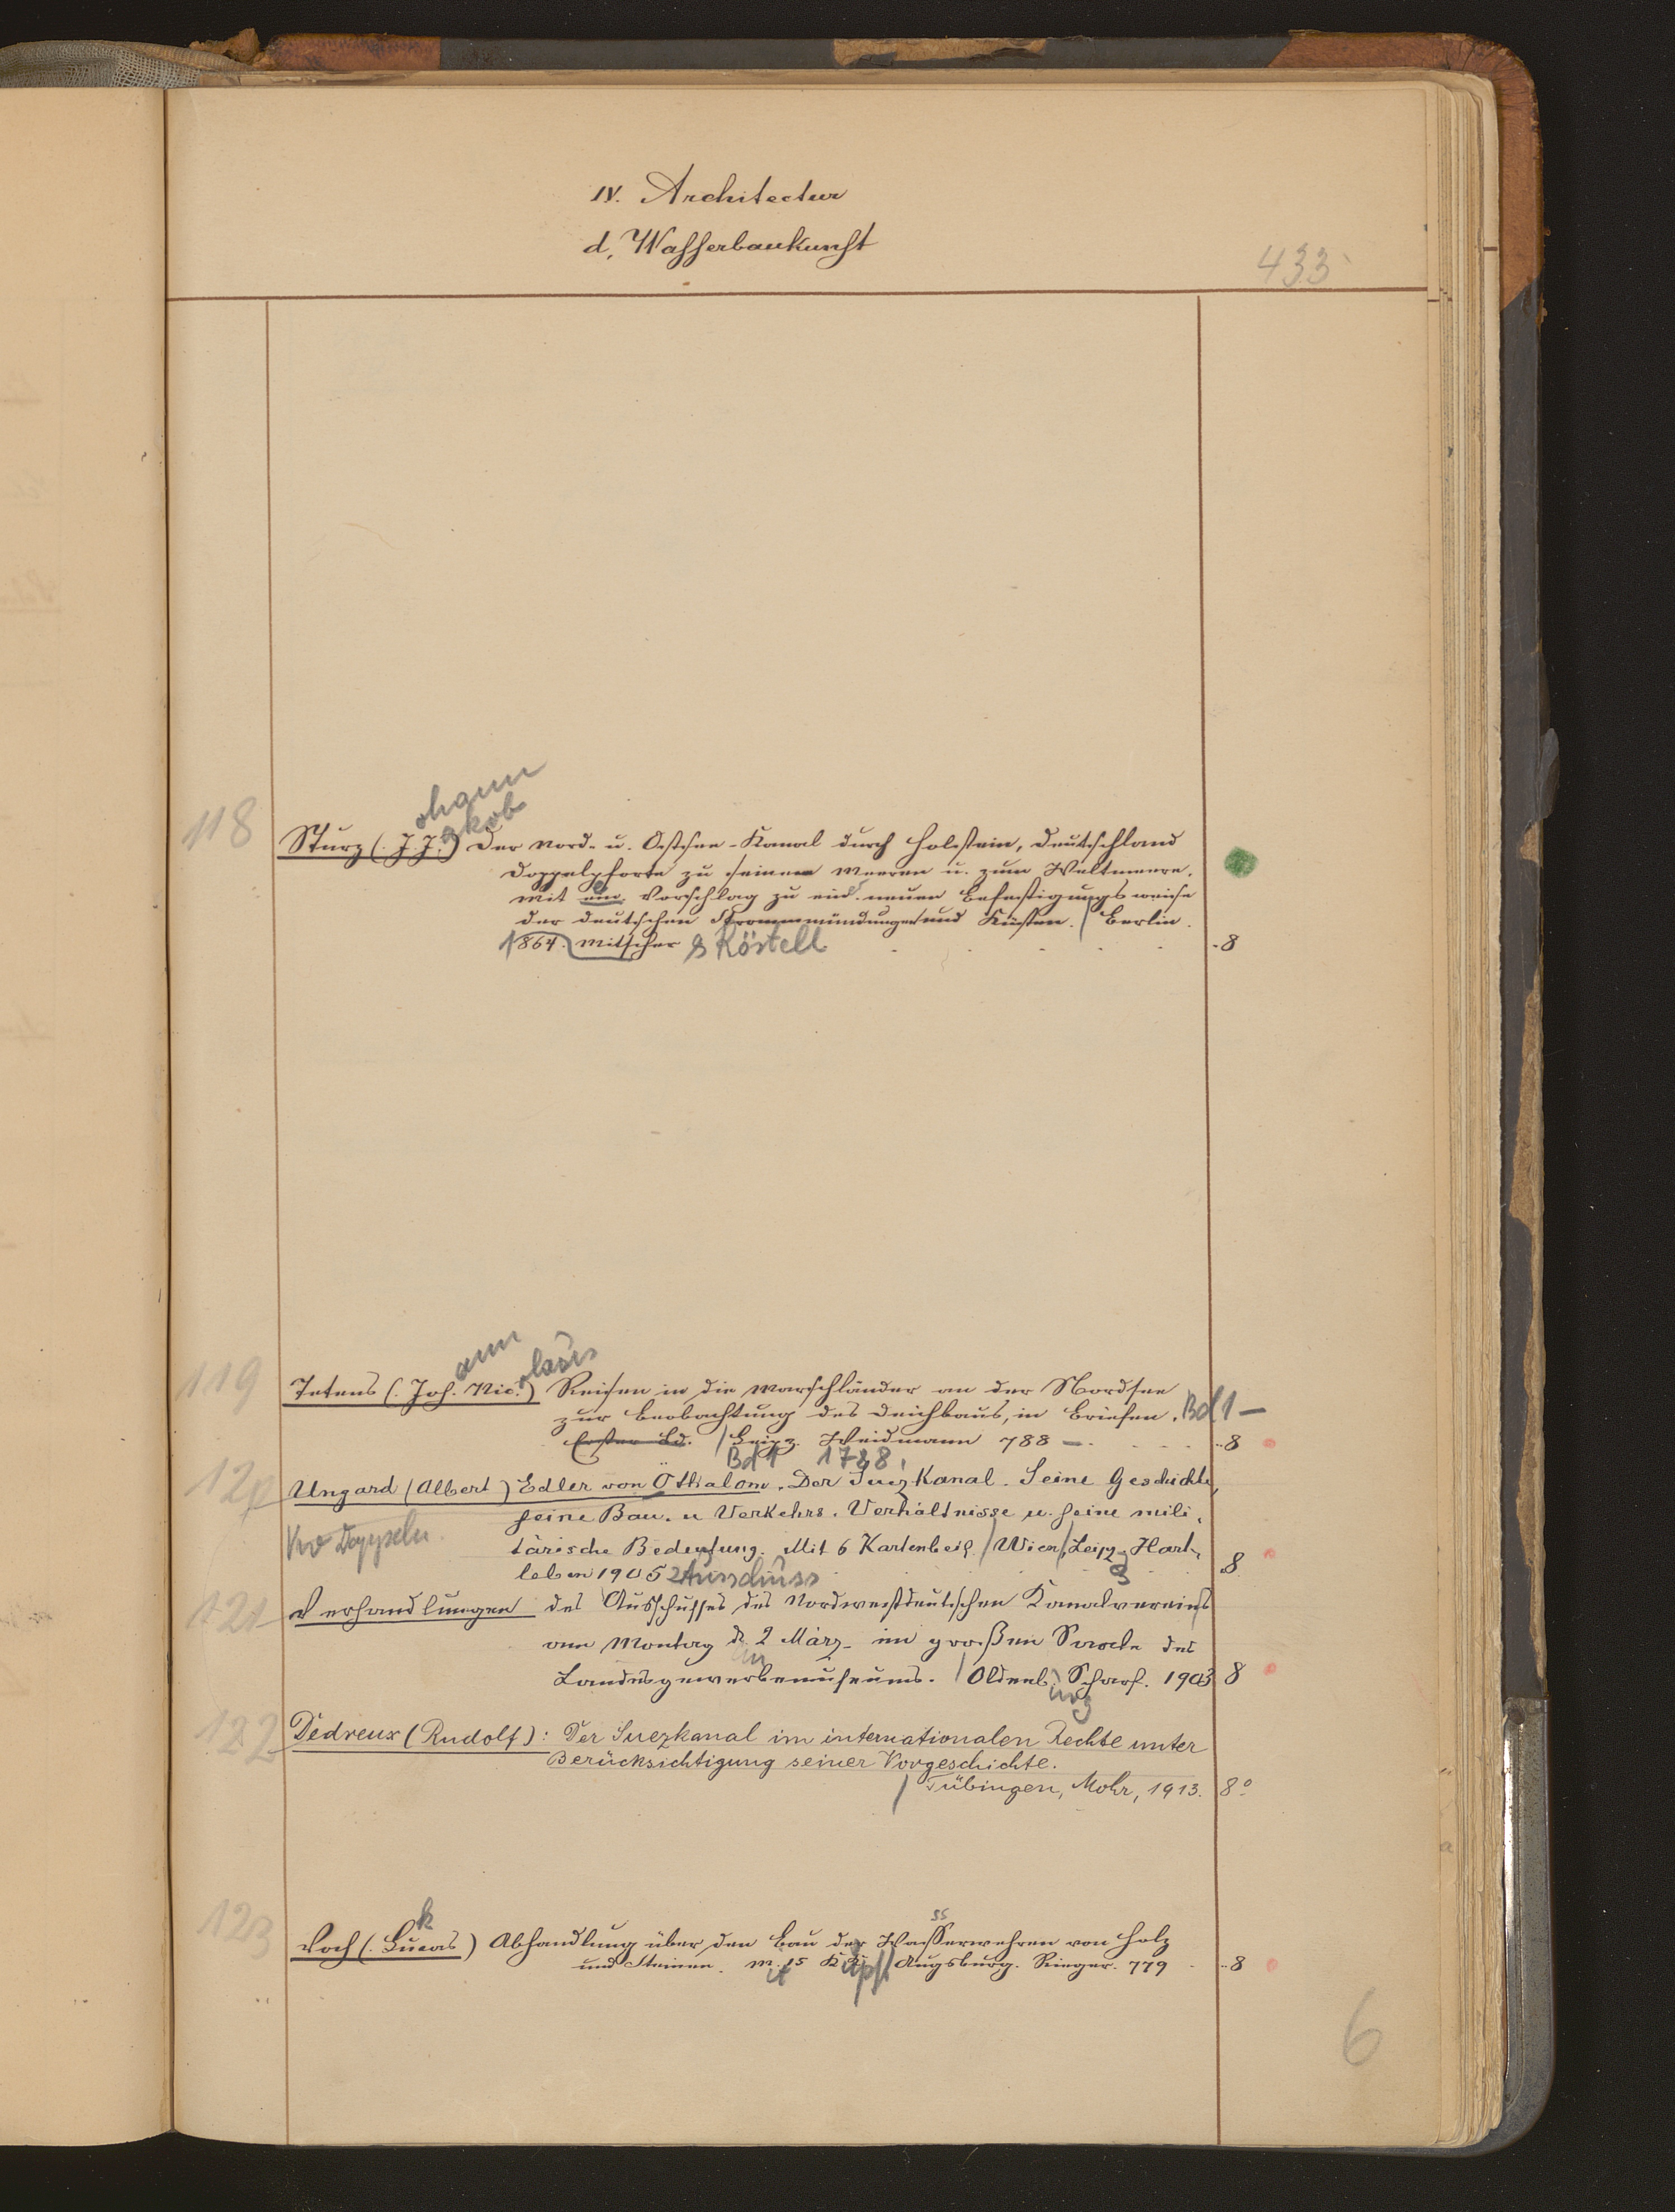 IV. Architectur
d, Wasserbaukunst
433
ohann
akob
118 Sturz (J. J.) Der Nord- u. Ostsee-Kanal durch Holstein, Deutschland
Doppelpforte zu seinen Meeren u. zum Weltmeere.
Mit ein. Vorschlag zu ein. neuen Befestigungsweise
der deutschen Strommündungen und Küsten. / Berlin.
1864. Mitscher & Röstell 8
ann olaus
119 Tetens (Joh. Nic.) Reisen in die Marschländer an der Nordsee
zur Beobachtung des Deichbaus, in Briefen. Bd 1 –
Erster Bd. / Leipz. Weidmann 788 – 8
Bd 1 1788
120 Ungard (Albert) Edler von Öthalom. Der Suez Kanal. Seine Geschichte,
seine Bau- u Verkehrs-Verhältnisse u. seine mili-
tärische Bedeutung. Mit 6 Kartenbeil. / Wien, Leipzg Hart-
leben 1905 8
Ausschuss
121 Verhandlungen des Ausschusses des Nordwestdeutschen Kanalvereins
am Montag d. 2 März im großen Saale des
Landesgewerbemuseums. / Oldenb. Scharf. 1903 8
urg
122 Dedreux (Rudolf): Der Suezkanal im internationalen Rechte unter
Berücksichtigung seiner Vorgeschichte.
/ Tübingen, Mohr, 1913. 8°
k ss
123 Voch (Lucas) Abhandlung über den Bau der Wasserwehren von Holz
und Steinen. M. 15 K / Augsburg. Rieger. 779 8
it upf
6